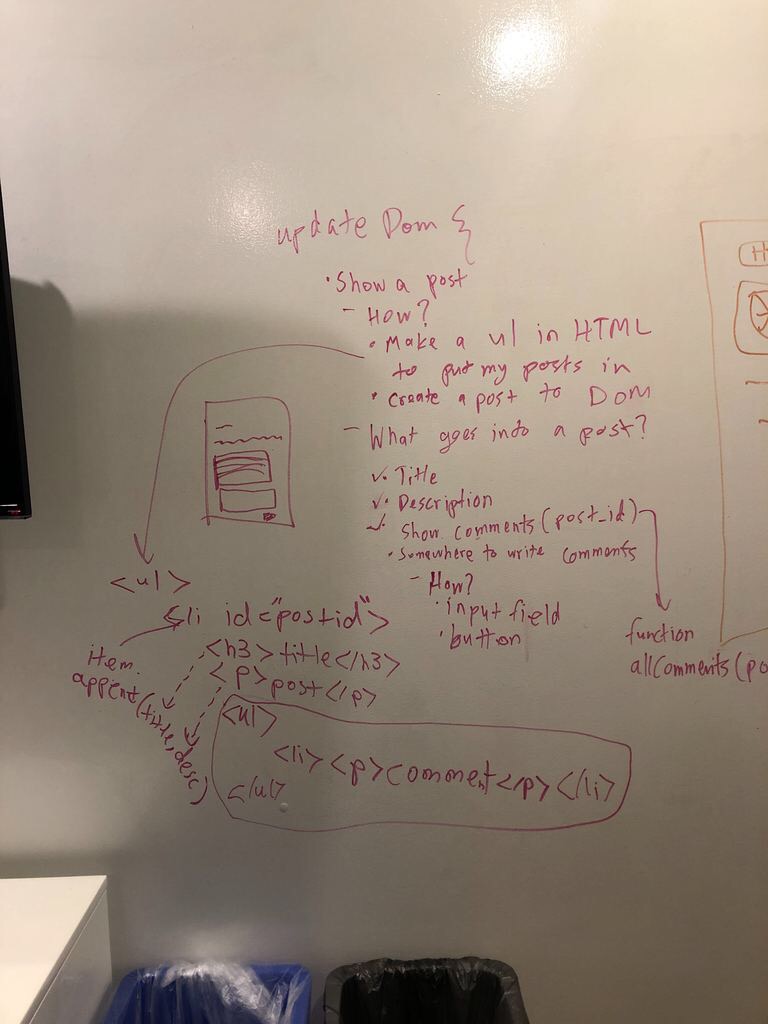 update Dom {
• Show a post
- How?
• Make a ul in HTML
to put my posts in
• Create a post to Dom
- What goes into a post?
✓• Title
✓• Description
✓ Show comments (post_id)
• Somewhere to write comments
- How?
• input field
• button
function
allComments(po
<ul>
<li id="postid">
<h3>title</h3>
<p>post</p>
item.
append(title, desc)
<ul>
<li><p>comment</p></li>
</ul>
H